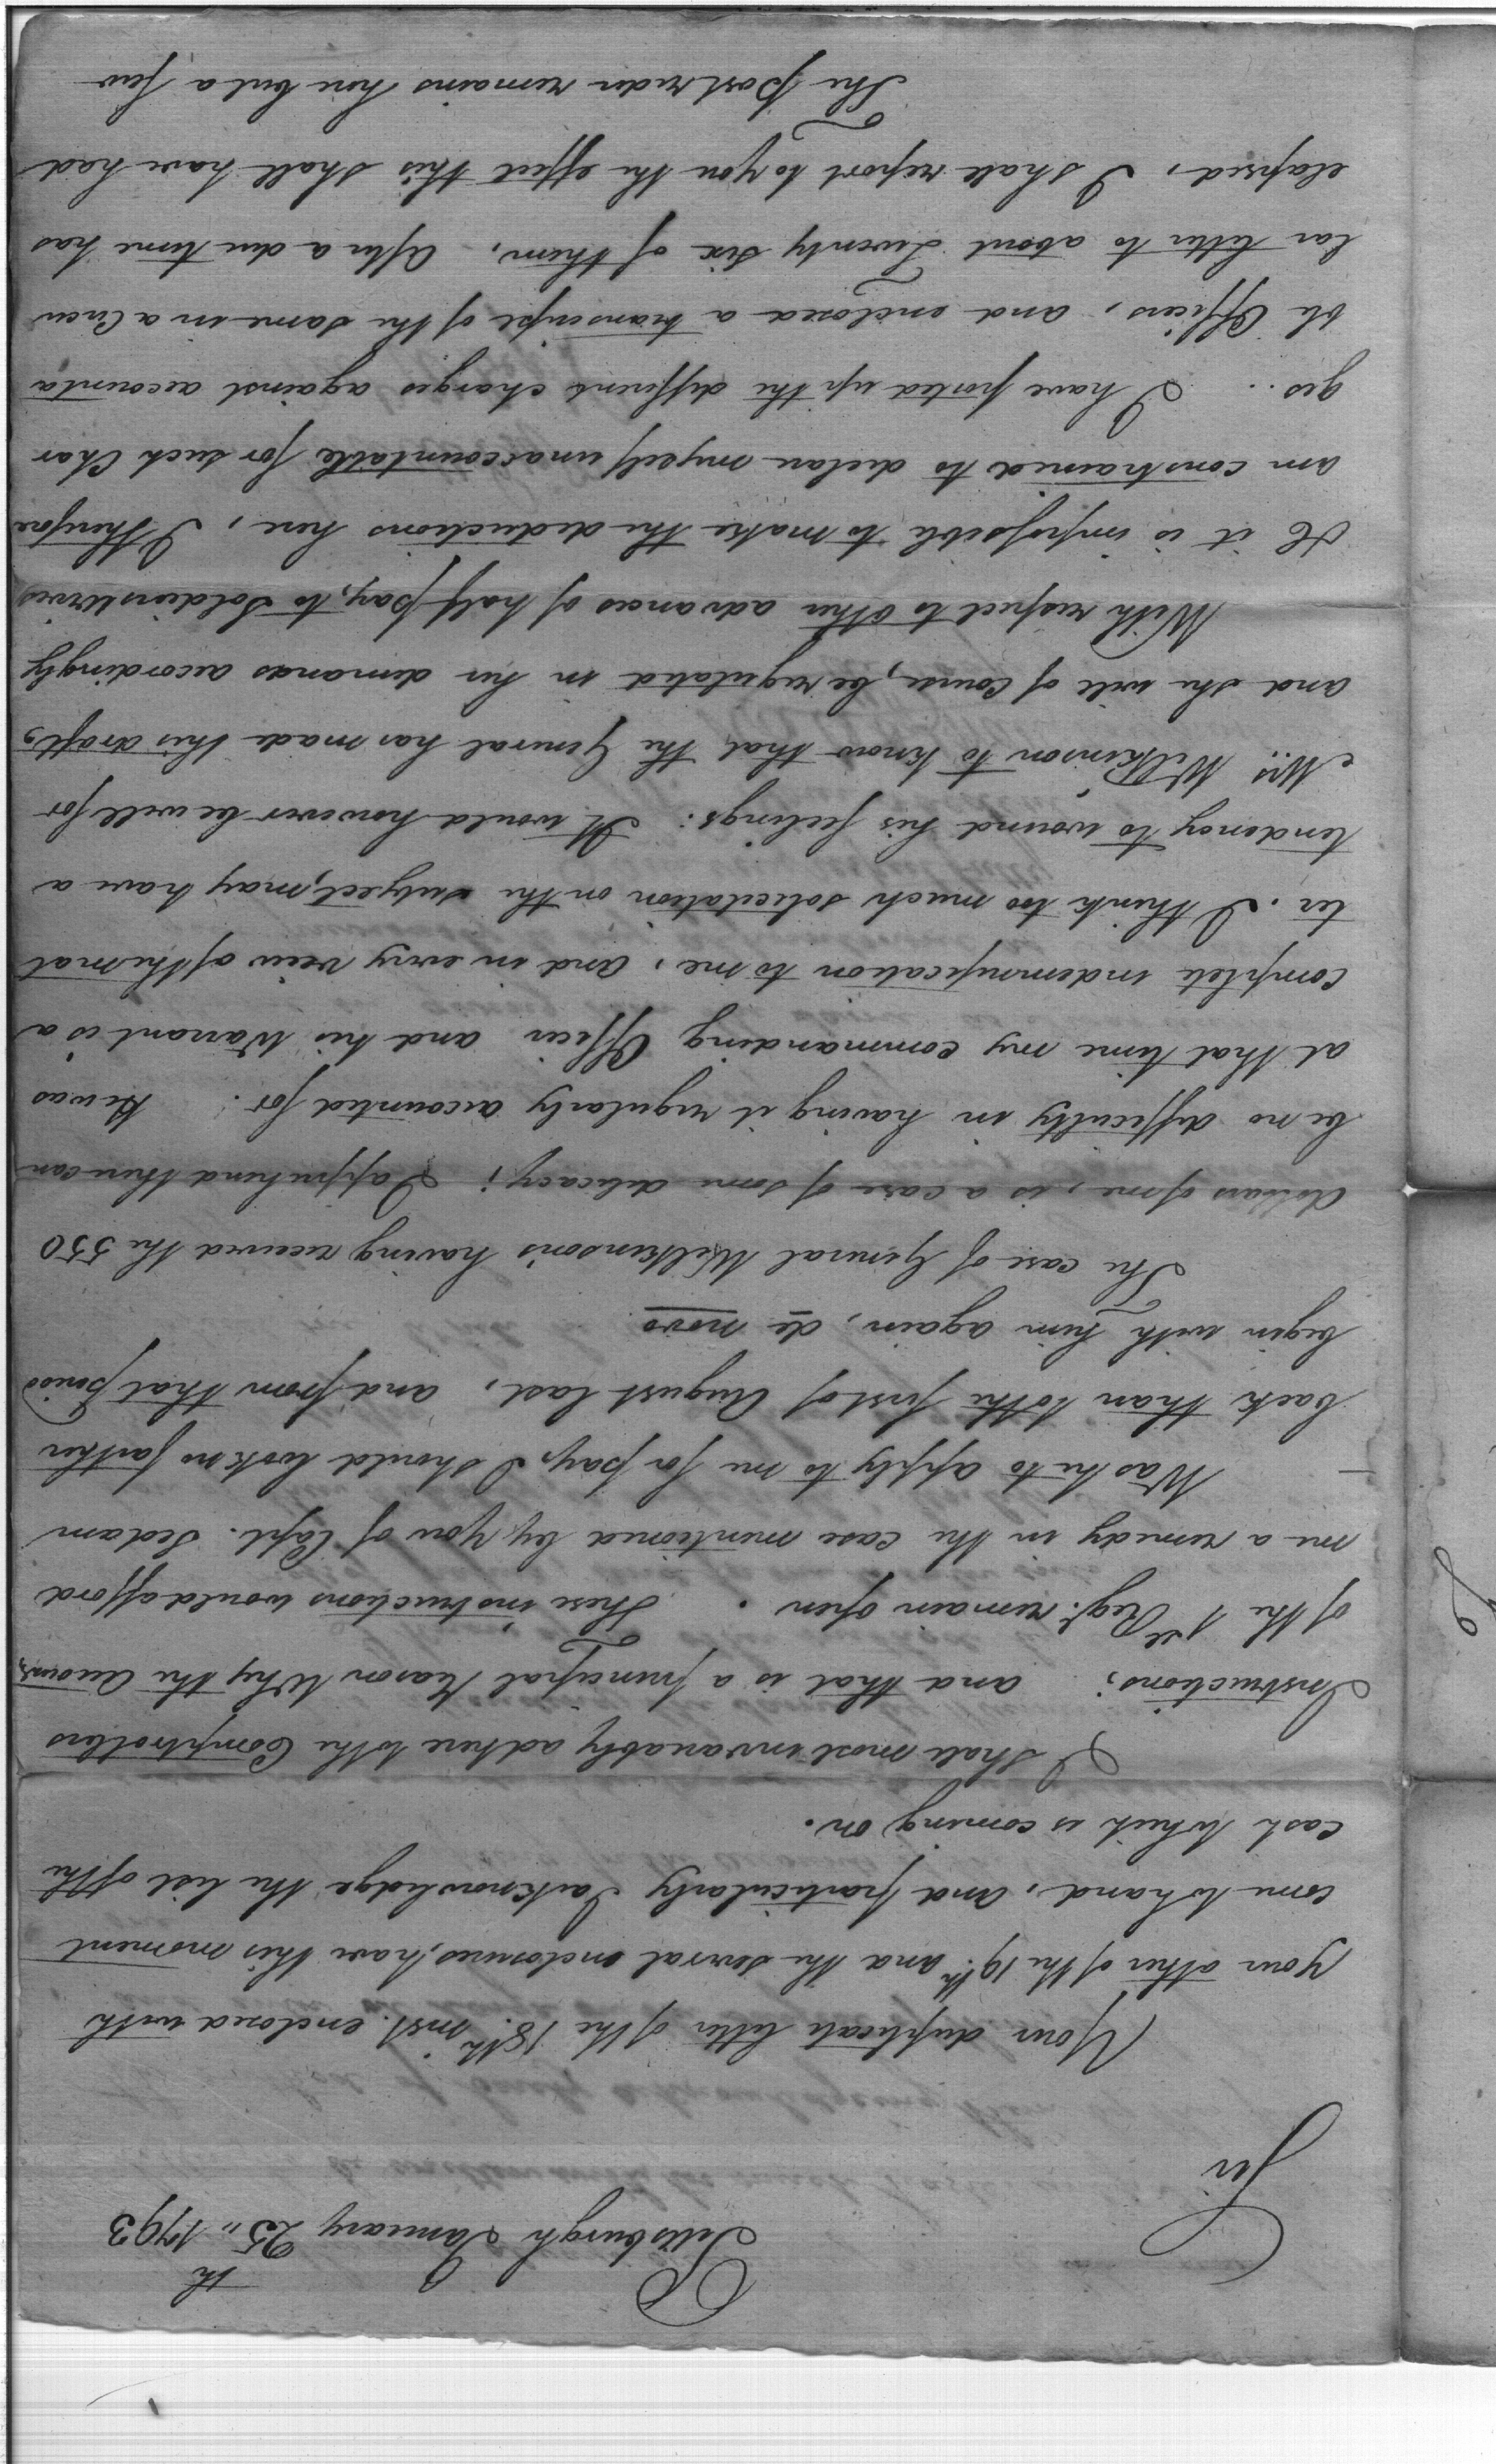 Pittsburgh January 25th 1793
Sir
Your duplicate letter of the 18th inst. enclosed with
your other of the 19th and the several enclosures, have this moment
come to hand, and particularly I acknowledge the list of the
cash which is coming on.
I shall most invariably adhere to the Comptrollers
Instructions; and that is a principal Reason Why the Accounts
of the 1st Regt. remain open. These instructions would afford
me a remedy in the case mentioned by you of Capt. Sedam
Was he to apply to me for pay, I should look no farther
back than to the first of August last, and from that period
begin with him again, de novo
The case of General Wilkinson's having received the 550
dollars of me, is a case of some delicacy; I apprehend there can
be no difficulty in having it regularly accounted for: He was
at that time my commanding Officer and his Warrant is a
complete indemnification to me, and in every veiw of the mat
ter. I think too much solicitation on the subject, may have a
tendency to wound his feelings: It would however be well for
Mrs. Wilkinson to know that the General has made this draft,
and she will of Course, be regulated in her demands accordingly
With respect to other advances of half pay, to Soldiers Wives
&c it is impossible to make the deductions here, I therefore
am constrained to declare myself unaccountable for such Char
ges.. I have posted up the different charges against accounta
ble Officers, and enclosed a transcript of the same in a Circu
lar letter to about Twenty six of them, After a due time has
elapsed, I shall report to you the effect this shall have had
The Post rider remains here but a few